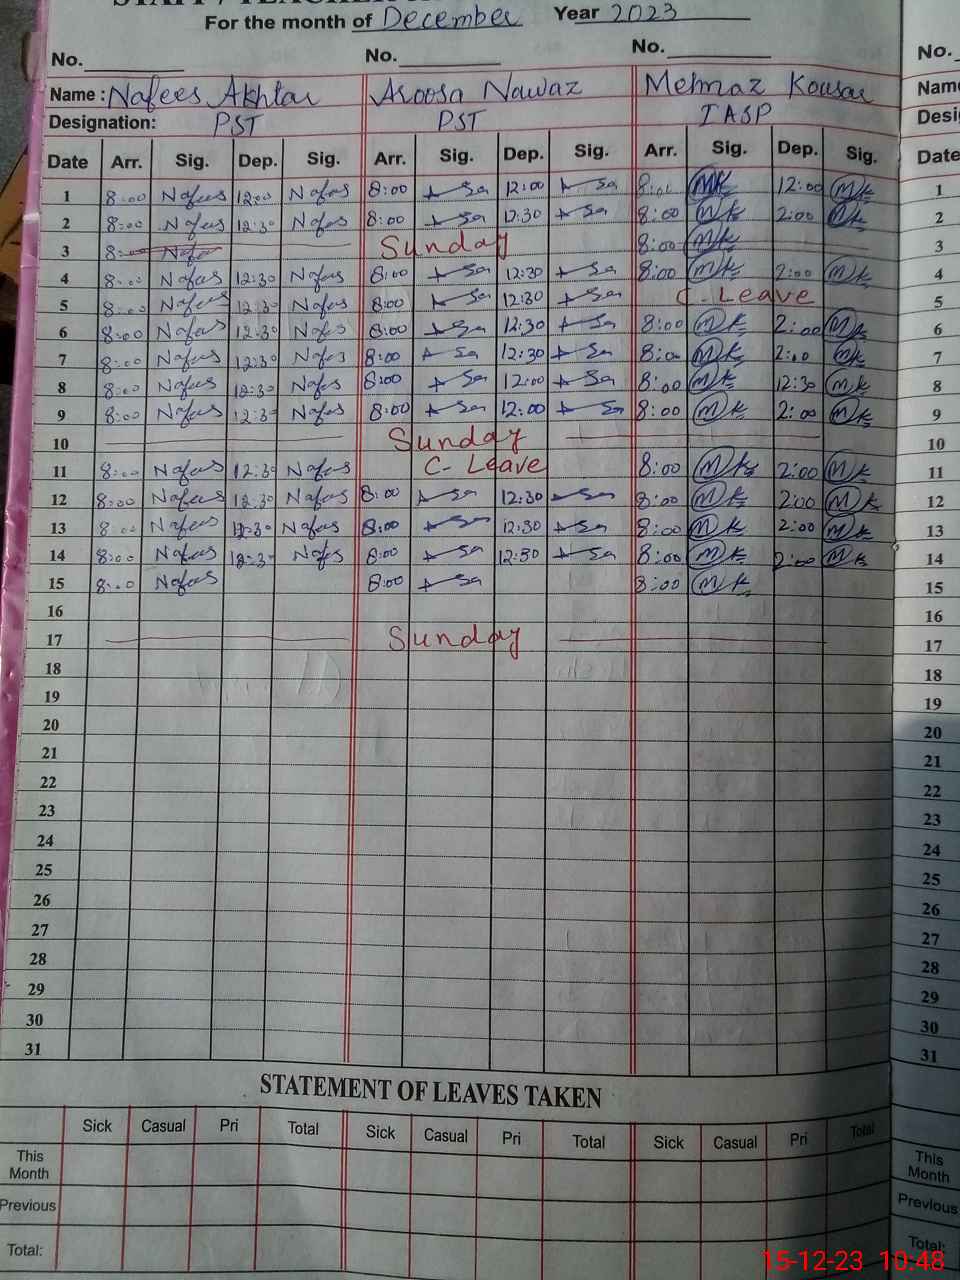 For the month of December Year 2023
No. No. No. No.
Name : Nafees Akhtar Aroosa Nawaz Mehnaz Kousar Name
Designation: PST PST IASP
Date Arr. Sig. Dep. Sig. Arr. Sig. Dep. Sig. Arr. Sig. Dep. Sig. Date
1 8:00 Nafees 12:00 Nafees 8:00 12:00 8:00 MK 12:00 MK 1
2 8:00 Nafees 12:30 Nafees 8:00 12:30 8:00 MK 2:00 MK 2
3 8: Nafe Sunday 8:00 MK 3
4 8:00 Nafees 12:30 Nafees 8:00 12:30 8:00 MK 2:00 MK 4
5 8:00 Nafees 12:30 Nafees 8:00 12:30 C-Leave 5
6 8:00 Nafees 12:30 Nafees 8:00 12:30 8:00 MK 2:00 MK 6
7 8:00 Nafees 12:30 Nafees 8:00 12:30 8:00 MK 2:00 MK 7
8 8:00 Nafees 12:30 Nafees 8:00 12:00 8:00 MK 12:30 MK 8
9 8:00 Nafees 12:30 Nafees 8:00 12:00 8:00 MK 2:00 MK 9
10 Sunday 10
11 8:00 Nafees 12:30 Nafees C-Leave 8:00 MK 2:00 MK 11
12 8:00 Nafees 12:30 Nafees 8:00 12:30 8:00 MK 2:00 MK 12
13 8:00 Nafees 12:30 Nafees 8:00 12:30 8:00 MK 2:00 MK 13
14 8:00 Nafees 12:30 Nafees 8:00 12:30 8:00 MK 2:00 MK 14
15 8:00 Nafees 8:00 8:00 MK 15
16 16
17 Sunday 17
18 18
19 19
20 20
21 21
22 22
23 23
24 24
25 25
26 26
27 27
28 28
29 29
30 30
31 31
STATEMENT OF LEAVES TAKEN
Sick Casual Pri Total Sick Casual Pri Total Sick Casual Pri Total
This Month This Month
Previous Previous
Total: Total:
15-12-23 10:48